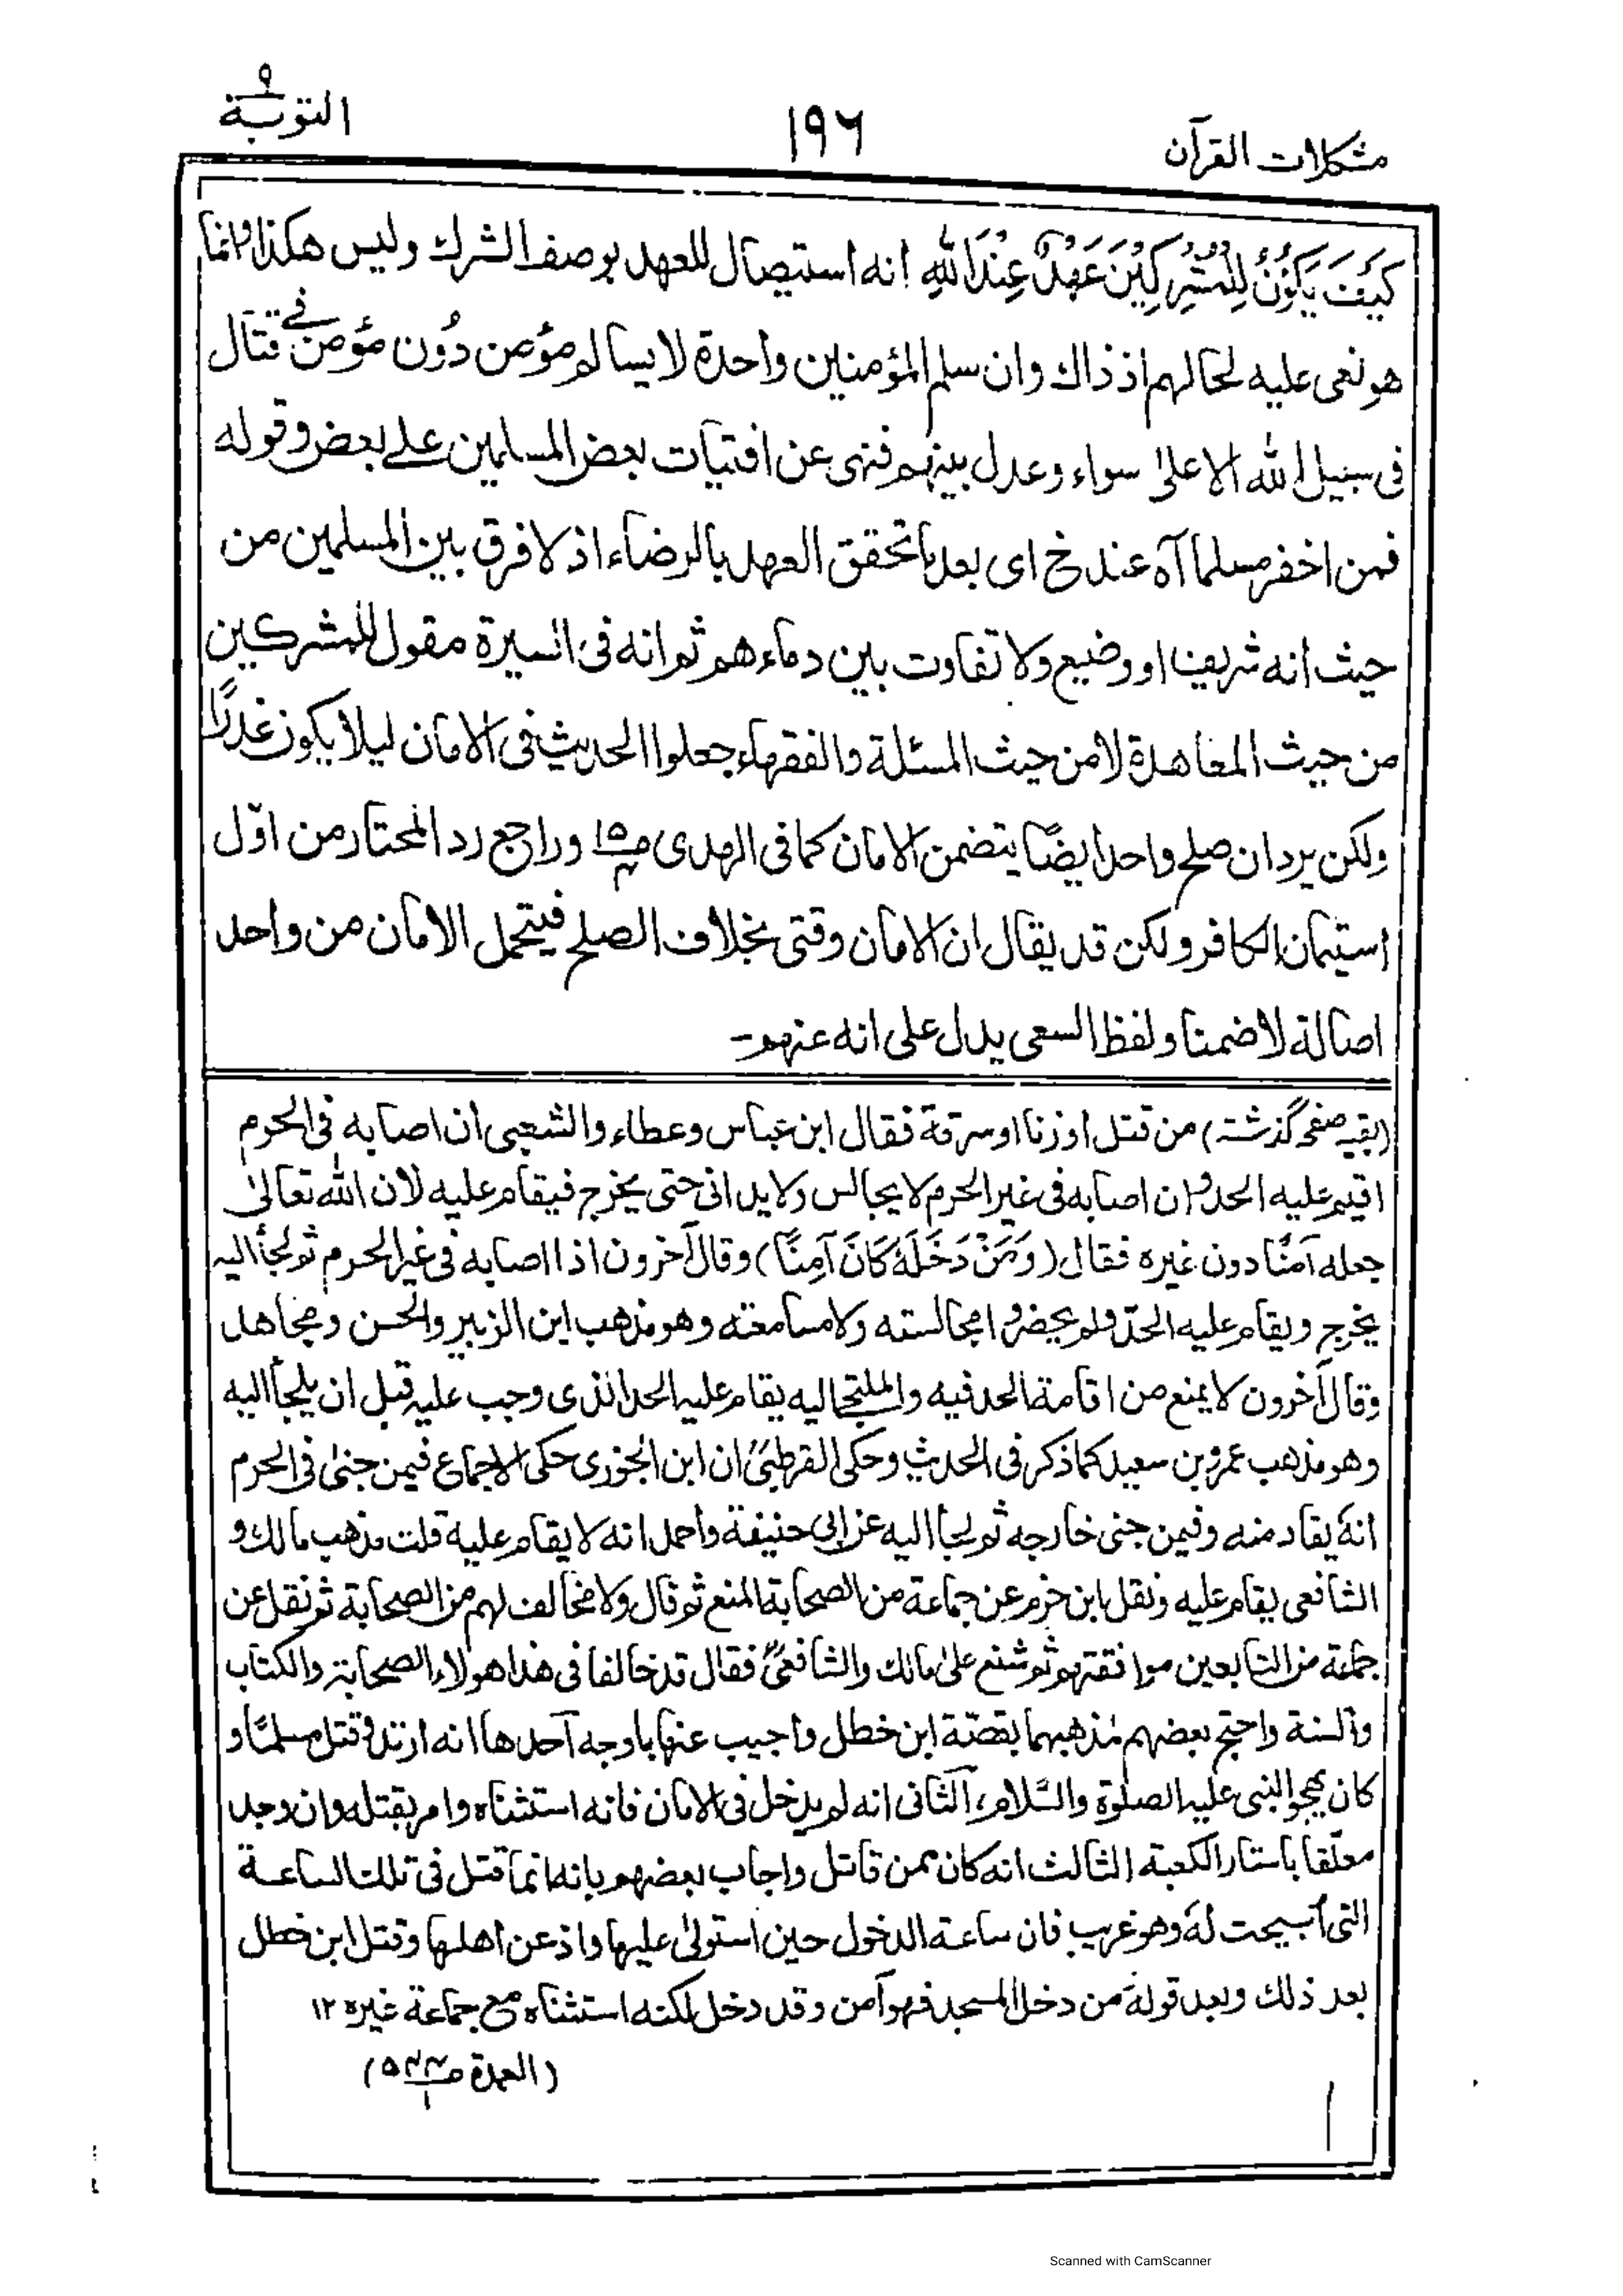 مشكلات القرآن
١٩٦
التوبة ٩
كَيْفَ يَكُوْنُ لِلْمُشْرِكِيْنَ عَهْدٌ عِنْدَ اللهِ انه استيصال للعهد بوصف الشرك وليس هكذا وانما
هو نعى عليه لحالهم اذ ذاك وان سلم المؤمنين واحدة لا يسالم مؤمن دُون مؤمن فے قتال
فى سبيل الله الا علىٰ سواء وعدل بينهم فنهى عن افتيات بعض المسلمين علے بعض وقوله
فمن اخفر مسلما آه عند خ اى بعد ما تحقق العهد بالرضاء اذ لا فرق بين المسلمين من
حيث انه شريف او وضيع ولا تفاوت بين دماءهم ثم انه فى السيرة مقول للمشركين
من حيث المعاهدة لا من حيث المسئلة والفقهاء جعلوا الحديث فى الامان ليلا يكون غدرًا
ولكن يرد ان صلح واحد ايضًا يتضمن الامان كما فى الهدى وراجع رد المحتار من اوّل
استيمان الكافر ولكن قد يقال ان الامان وقتى بخلاف الصلح فيتحمل الامان من واحد
اصالة لا ضمنا ولفظ السعى يدل على انه عنهم۔
(بقيہ صفحہ گذشتہ) من قتل او زنا او سرقة فقال ابن عباس وعطاء والشعبى ان اصابه فى الحرم
اقيم عليه الحد وان اصابه فى غير الحرم لا يجالس ولا يدانى حتى يخرج فيقام عليه لان الله تعالىٰ
جعله آمنًا دون غيره فقال (وَمَنْ دَخَلَهٗ كَانَ آمِنًا) وقال آخرون اذا اصابه فى غير الحرم ثم لجأ اليه
يخرج ويقام عليه الحدّ ولم يحضروا مجالسته ولا مسامعته وهو مذهب ابن الزبير والحسن ومجاهد
وقال آخرون لا يمنع من اقامة الحد فيه والملتجا اليه يقام عليه الحد الذى وجب عليه قبل ان يلجأ اليه
وهو مذهب عمرو بن سعيد كما ذكر فى الحديث وحكى القرطبىؒ ان ابن الجوزى حكى الاجماع فيمن جنىٰ فى الحرم
انه يقاد منه وفيمن جنى خارجه ثم لجأ اليه عن ابى حنيفة واحمد انه لا يقام عليه قلت مذهب مالك و
الشافعى يقام عليه ونقل ابن حزم عن جماعة من الصحابة المنع ثم قال ولا مخالف لهم من الصحابة ثم نقل عن
جماعة من التابعين موافقتهم ثم شنع علىٰ مالك والشافعىؒ فقال قد خالفا فى هذا هولاء الصحابة والكتاب
والسنة واحتج بعضهم لمذهبهما بقصّة ابن خطل واجيب عنها باوجه آحدها انه ارتد وقتل مسلمًا و
كان يهجو النبى عليه الصلوٰة والسّلام، آلثانى انه لم يدخل فى الامان فانه استثناه وامر بقتله وان وجد
معلّقا باستار الكعبة الثالث انه كان ممن قاتل واجاب بعضهم بانه انما قتل فى تلك الساعة
التى ابيحت له وهو غريب فان ساعة الدخول حين استولىٰ عليها واذعن اهلها وقتل ابن خطل
بعد ذلك وبعد قوله من دخل المسجد فهو آمن وقد دخل لكنه استثناه مع جماعة غيره ١٢
(العمدة
Scanned with CamScanner